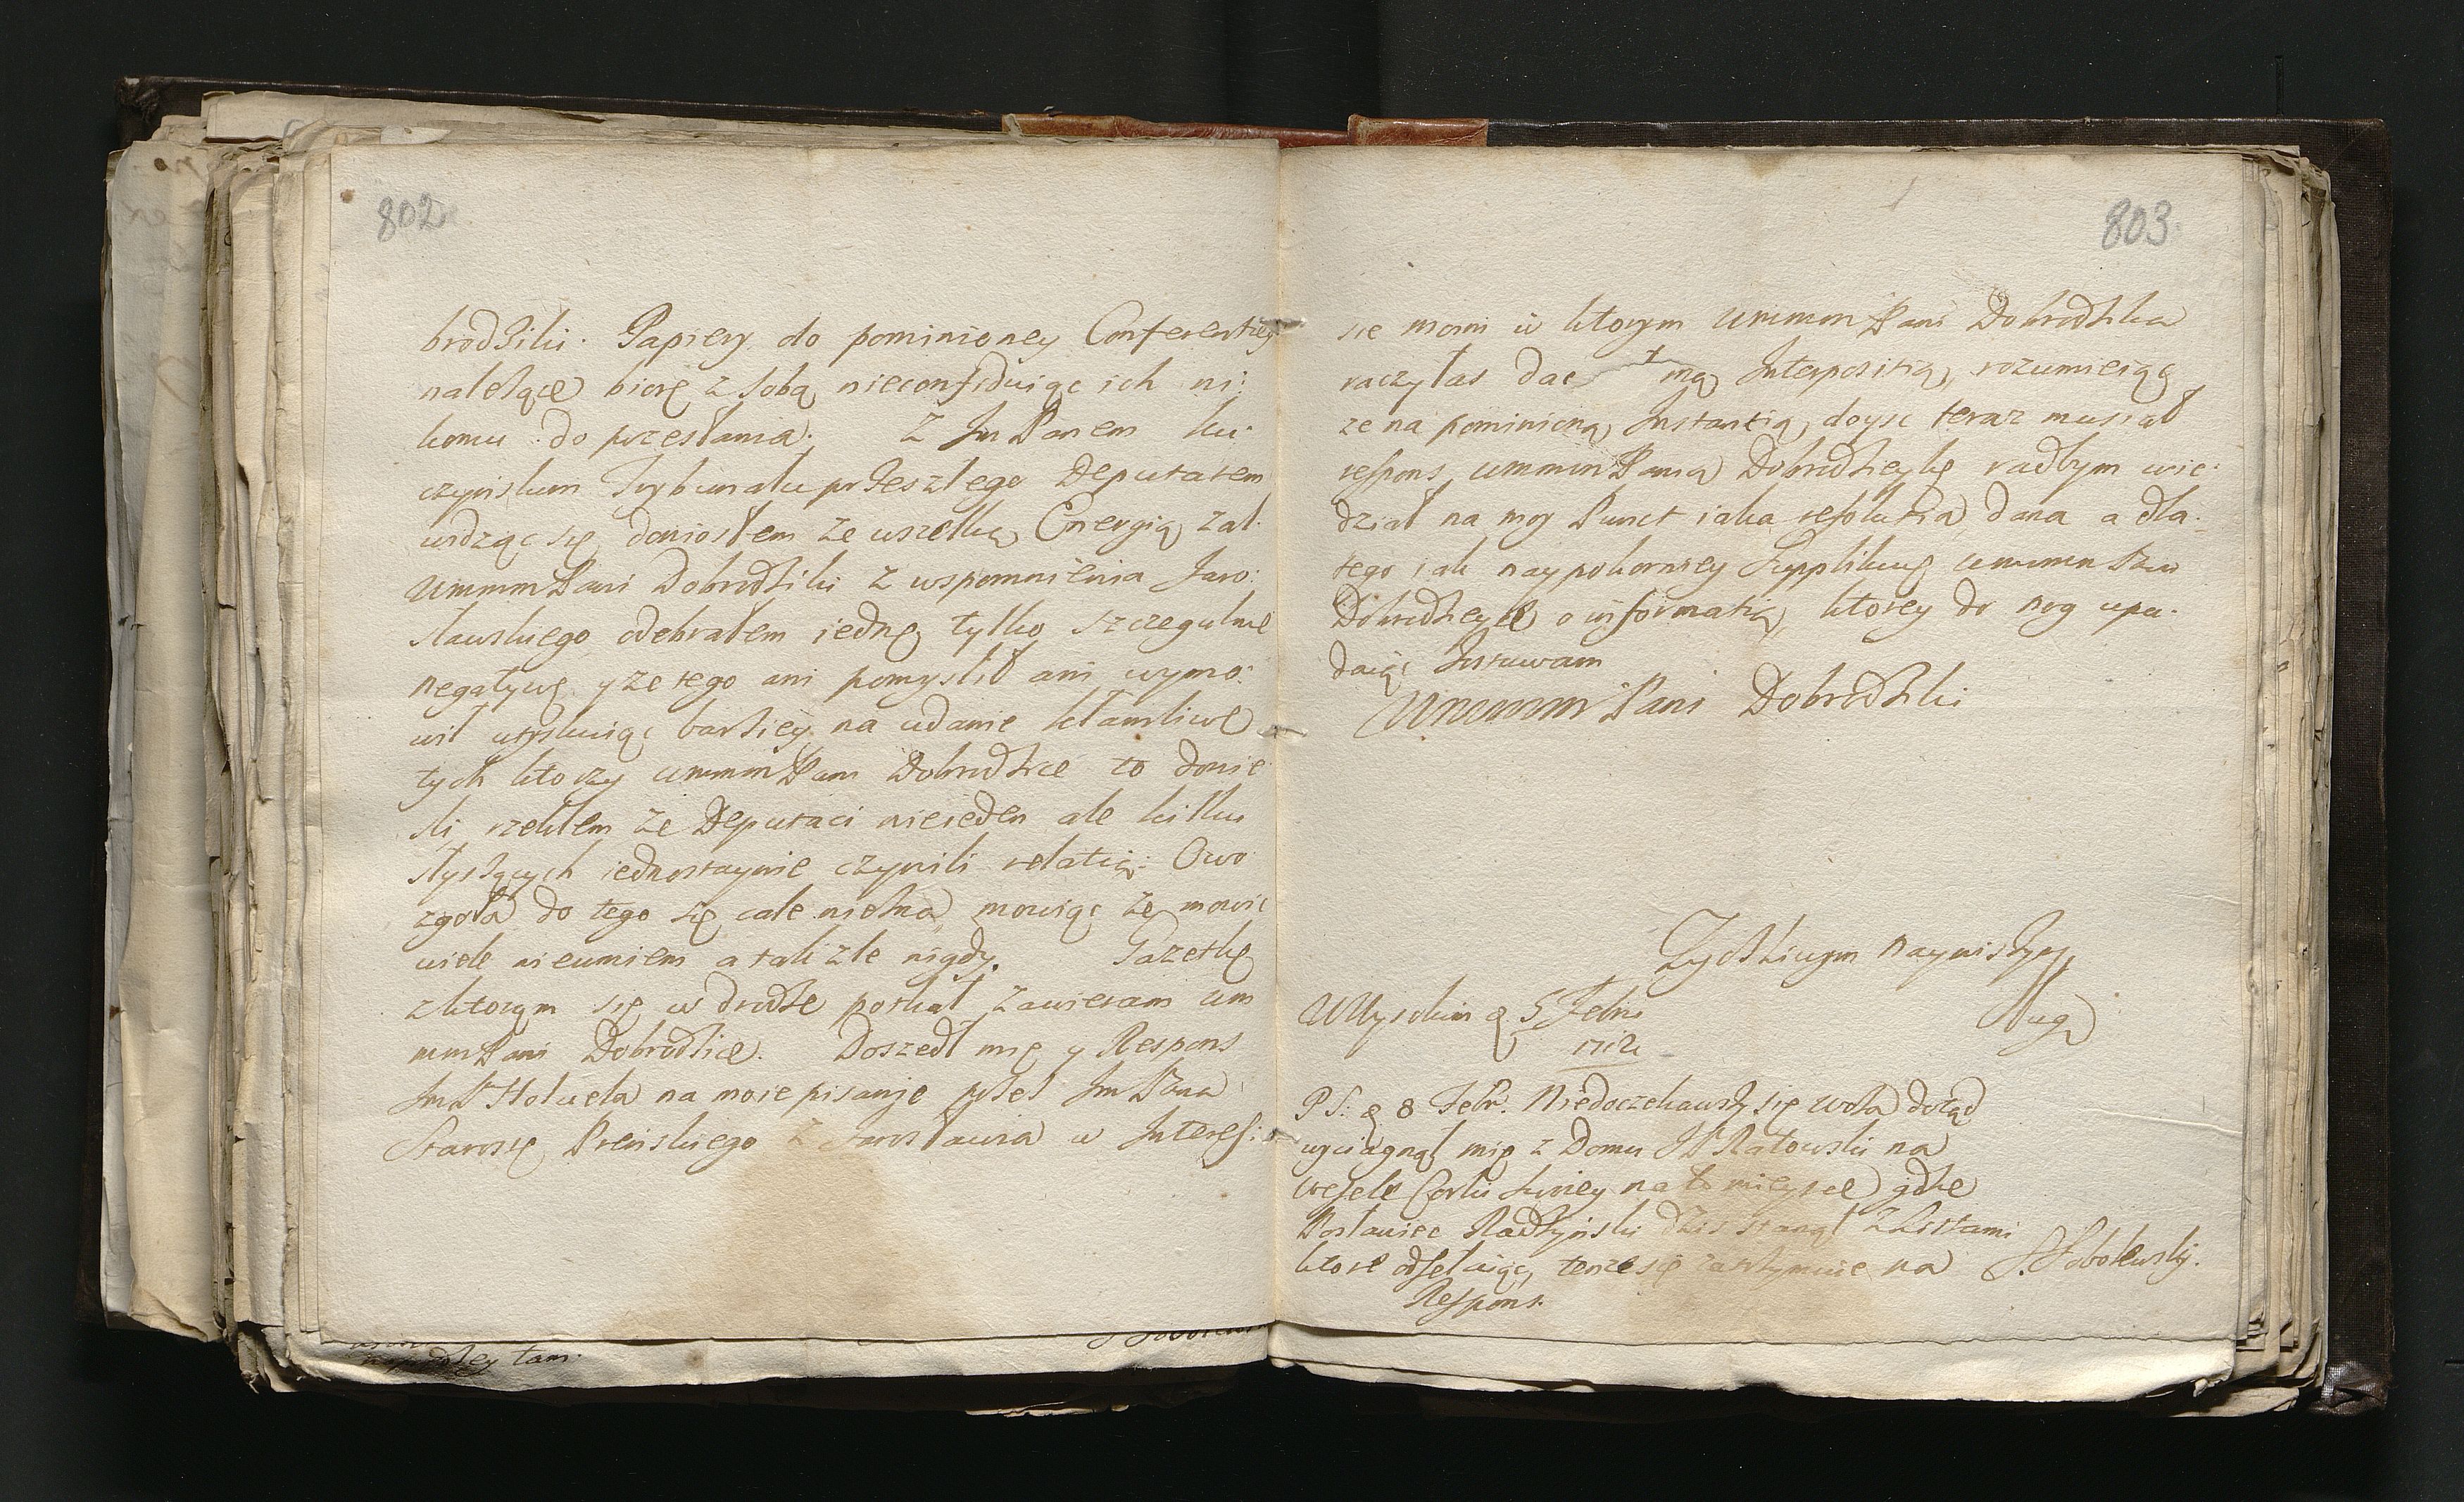 802
brodziki. Papiery do pominioney Conferentiey
należące biorę z sobą nieconfiduiąc ich ni:
komu do przesłania. Z Jm Panem Ku:
czynskim Trybunału przeszlego Deputatem
widząc się doniosłem ze wszelką Energią żal
Ummm Pani Dobrodziki z wspomnienia Jaro:
sławskiego odebrałem iednę tylko szczegulne
negatywę y ze tego ani pomyslił ani wymo:
wił utyskuiąc barziey na udanie kłamliwe
tych ktorzy ummm Pani Dobrodzice to donie
sli, rzekłem że Deputaci nieieden ale kilku
słyszących iednostaynie czynili relatią: Owo
zgoła do tego się cale niezna, mowiąc że mowić
wiele nieumiem a tak zle nigdy. Gazetkę
z ktorym się w drodze potkał zawieram um
mm Pani Dobrodzice. Doszedł mię y Respons
Jm P na moie pisanie przez Jm Pana
Starostę Prenskiego z Jarosławia w Interes:
803
sie moim w ktorym Ummm Pani Dobrodzika
raczyłas dac mą Interpositią, rozumieiąc
ze na pominioną Instantią doysc teraz musiał
respons, ummm Pania Dobrodzieykę radbym wie:
dział na moy Punct iaka resolutia dana a dla
tego iak naypokorniey Supplikuię ummm Pani
Dobrodzieyki o informatią, ktorey do nog upa:
daiąc
Ummmm Pani Dobrodziki
Zyczliwym naynizszym
sługą
5 Febr
1712
PS: 8 Febr. się woła dotąd
wyciągnął mię z Domu JP Ratowski na
wesele Corki swoiey na to mieysce gdzie
Posłaniec Radzynski dzis stanął z Listami
ktore odsełaiąc, tenze się zatrzymuie na
Respons.
S. Sobolewsky.
tam.